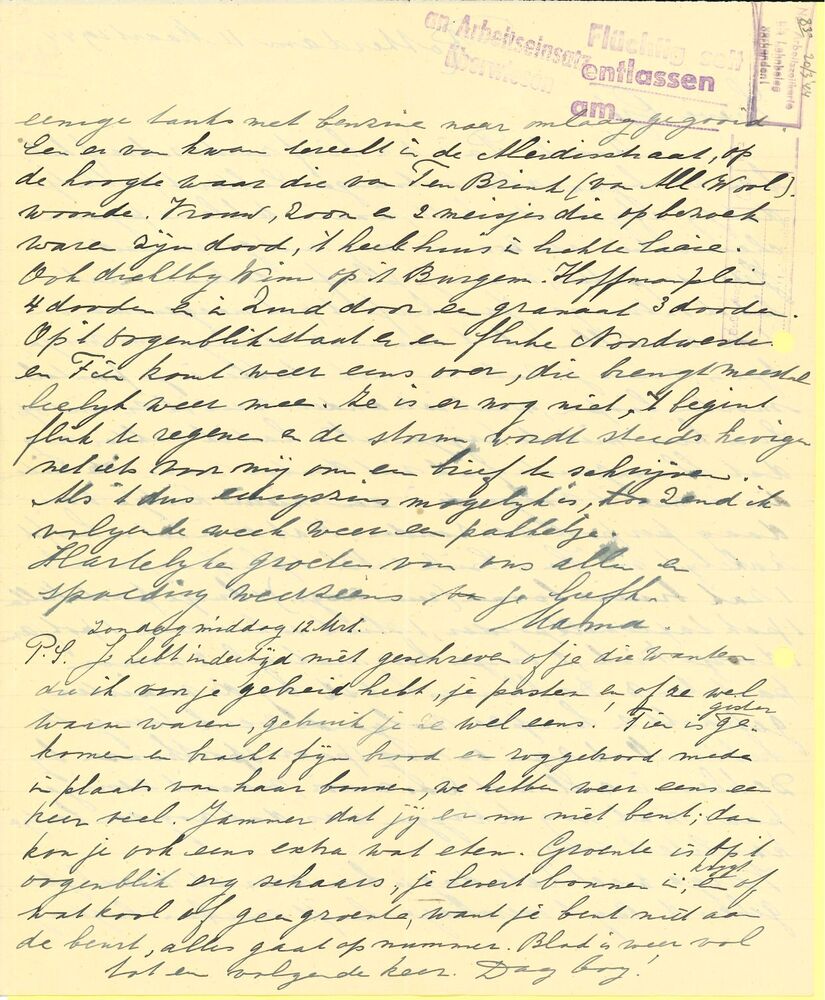 an Arbeitseinsatz
überwiesen
Flüchtig seit
entlassen
am
83a 20/3 '44
eenige tanks met benzine naar omlaag gegooid.
Een er van kwam terecht in de Meidisstraat, op
de hoogte waar die van Ten Brink (van All Wool)
woonde. Vrouw, zoon en 2 meisjes die op bezoek
waren zijn dood, 't heele huis in lichte laaie.
Ook dichtby Wim op 't Burgem. Hoffmanplein
4 dooden en in Zuid door een granaat 3 dooden.
Op 't oogenblik staat er een flinke Noordwester
en Fien komt weer eens over, die brengt meestal
leelyk weer mee. Ze is er nog niet, 't begint
flink te regenen en de storm wordt steeds heviger
net iets voor mij om een brief te schrijven.
Als 't dus eenigszins mogelyk is, zend ik
volgende week weer een pakketje.
Hartelyke groeten van ons allen en
spoedig weerziens van je liefh.
Mama.
Zondagmiddag 12 Mrt.
P.S. Je hebt indertijd niet geschreven of je die wanten
die ik voor je gebreid heb, je pasten en of ze wel
warm waren, gebruik je ze wel eens! Fien is gister ge-
komen en bracht fyn brood en roggebrood mede
in plaats van haar bonnen, we hebben weer eens een
keer veel. Jammer dat jy er nu niet bent; dan
kon je ook eens extra wat eten. Groente is op 't
oogenblik erg schaars, je levert bonnen in, en krygt of
wat kool of geen groente, want je bent niet aan
de beurt, alles gaat op nummer. Blad is weer vol
tot een volgende keer. Dag boy!